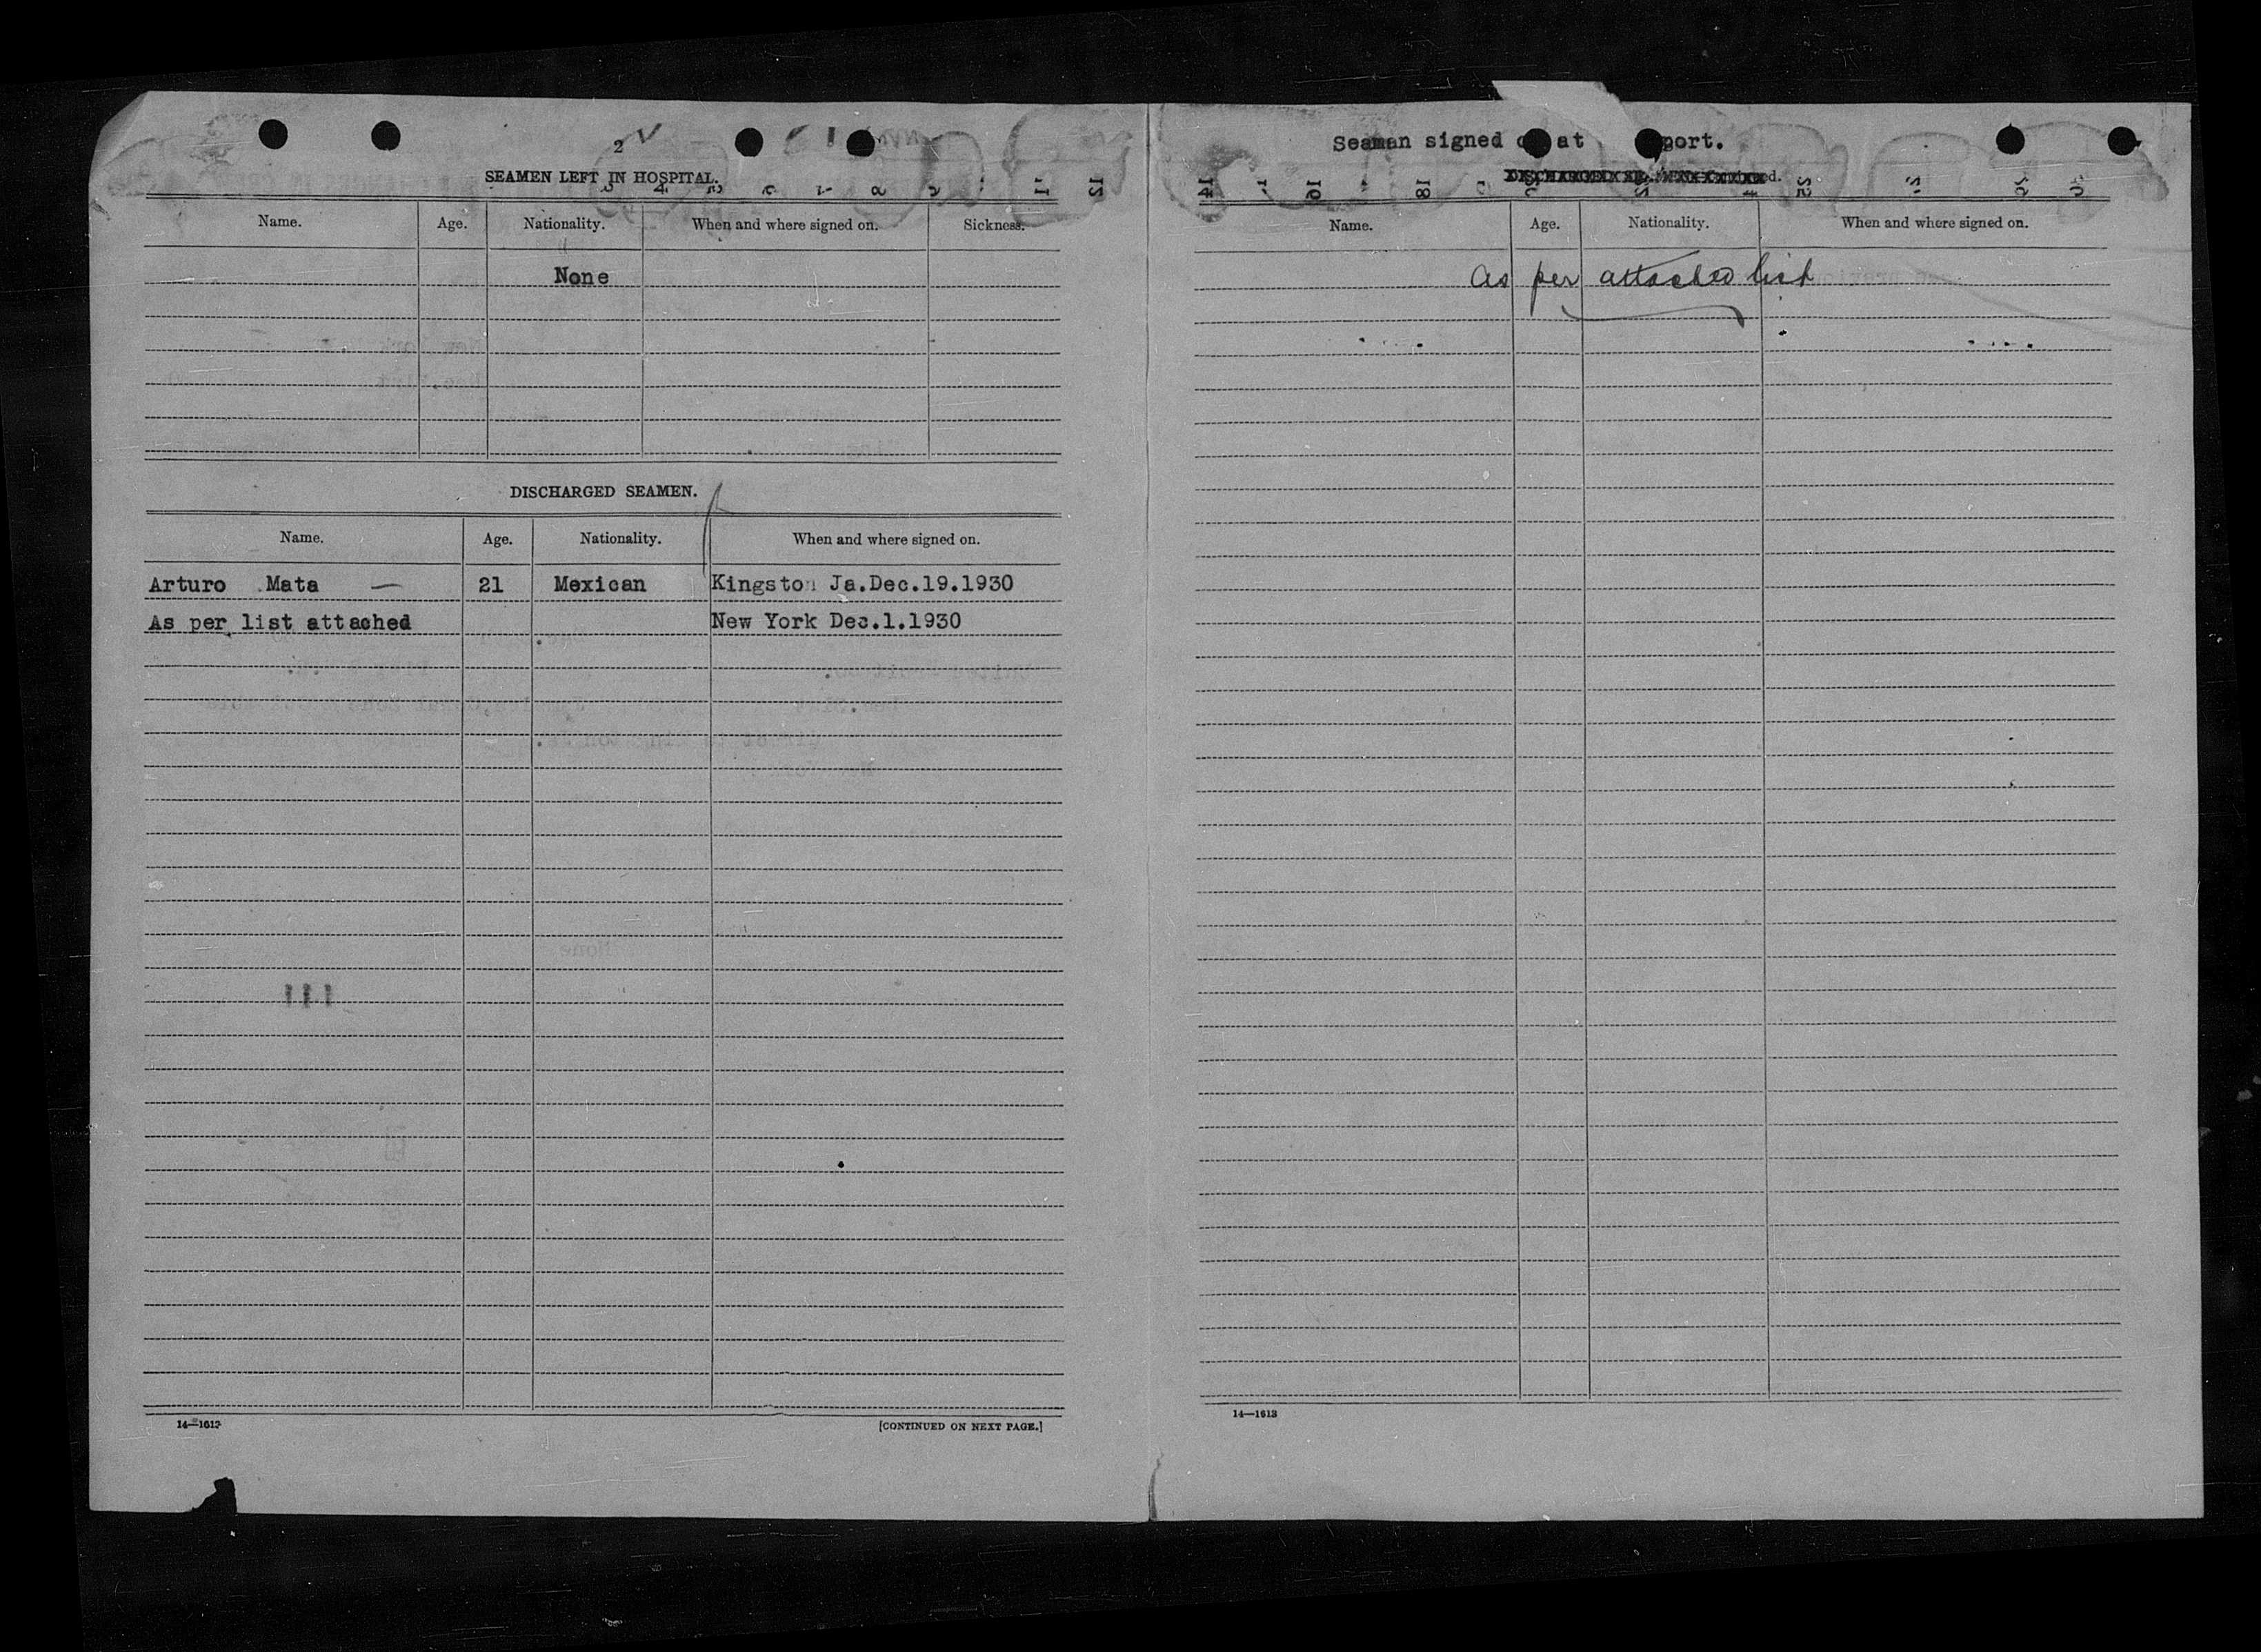 2
SEAMEN LEFT IN HOSPITAL.
Name. Age. Nationality. When and where signed on. Sickness.
None
DISCHARGED SEAMEN.
Name. Age. Nationality. When and where signed on.
Arturo Mata — 21 Mexican Kingston Ja.Dec.19.1930
As per list attached New York Dec.1.1930
14—1613
[CONTINUED ON NEXT PAGE.]
Seaman signed at port.
Name. Age. Nationality. When and where signed on.
As per attached list
14—1613